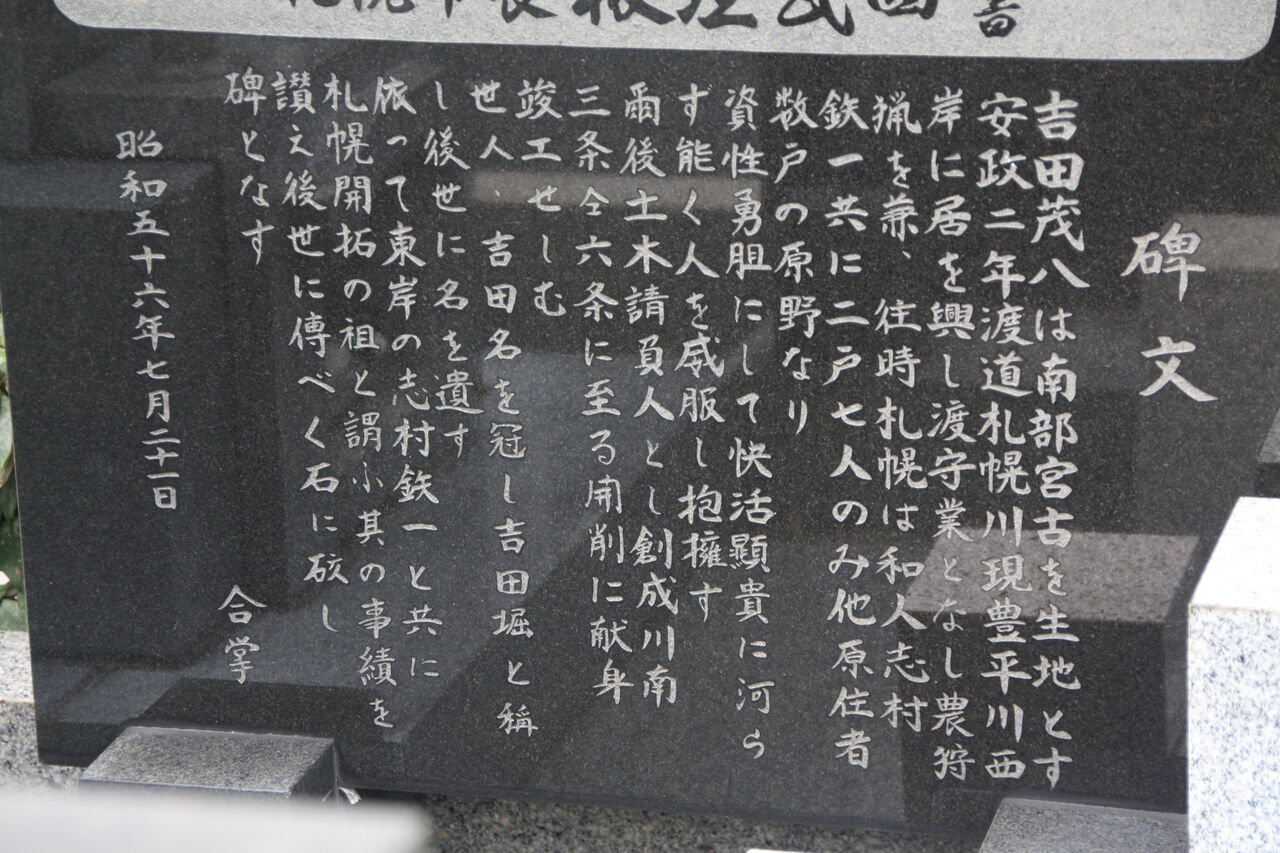 札幌市長 板垣武四 書
碑文
吉田茂八は南部宮古を生地とす
安政二年渡道札幌川現豊平川西
岸に居を興し渡守業となし農狩
猟を兼、往時札幌は和人志村
鉄一共に二戸七人のみ他原住者
数戸の原野なり
資性勇胆にして快活顕貴に河ら
ず能く人を威服し抱擁す
爾後土木請負人とし創成川南
三条仝六条に至る開削に献身
竣工せしむ
世人、吉田名を冠し吉田堀と称
し後世に名を遺す
依って東岸の志村鉄一と共に
札幌開拓の祖と謂ふ其の事績を
讃え後世に傳べく石に砿し
碑となす
昭和五十六年七月二十一日
合掌